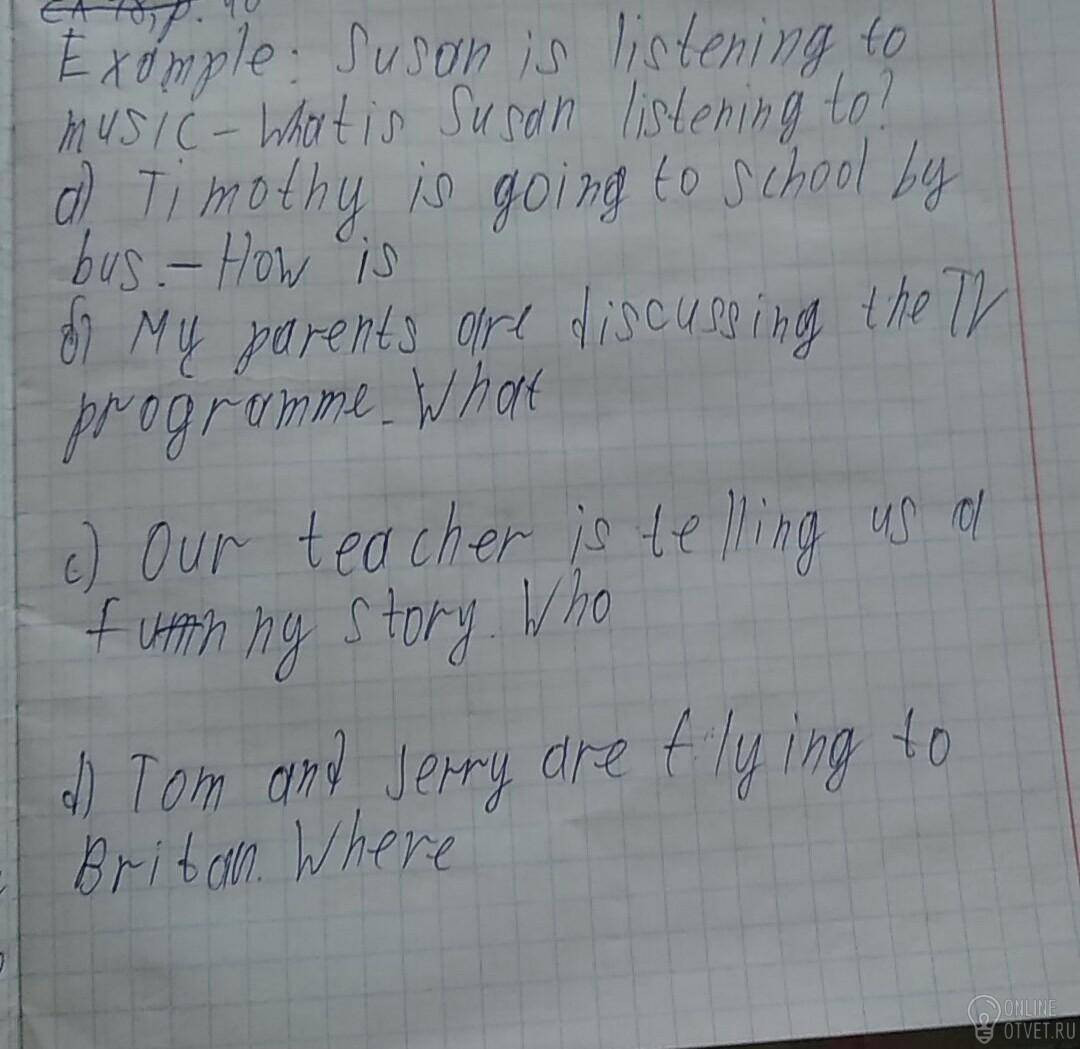 Ex 18, p. 40
Example: Susan is listening to
music - What is Susan listening to?
a) Timothy is going to school by
bus. - How is
b) My parents are discussing the TV
programme - What
c) Our teacher is telling us a
funny story. Who
d) Tom and Jerry are flying to
Britan. Where
ONLINE
OTVET.RU